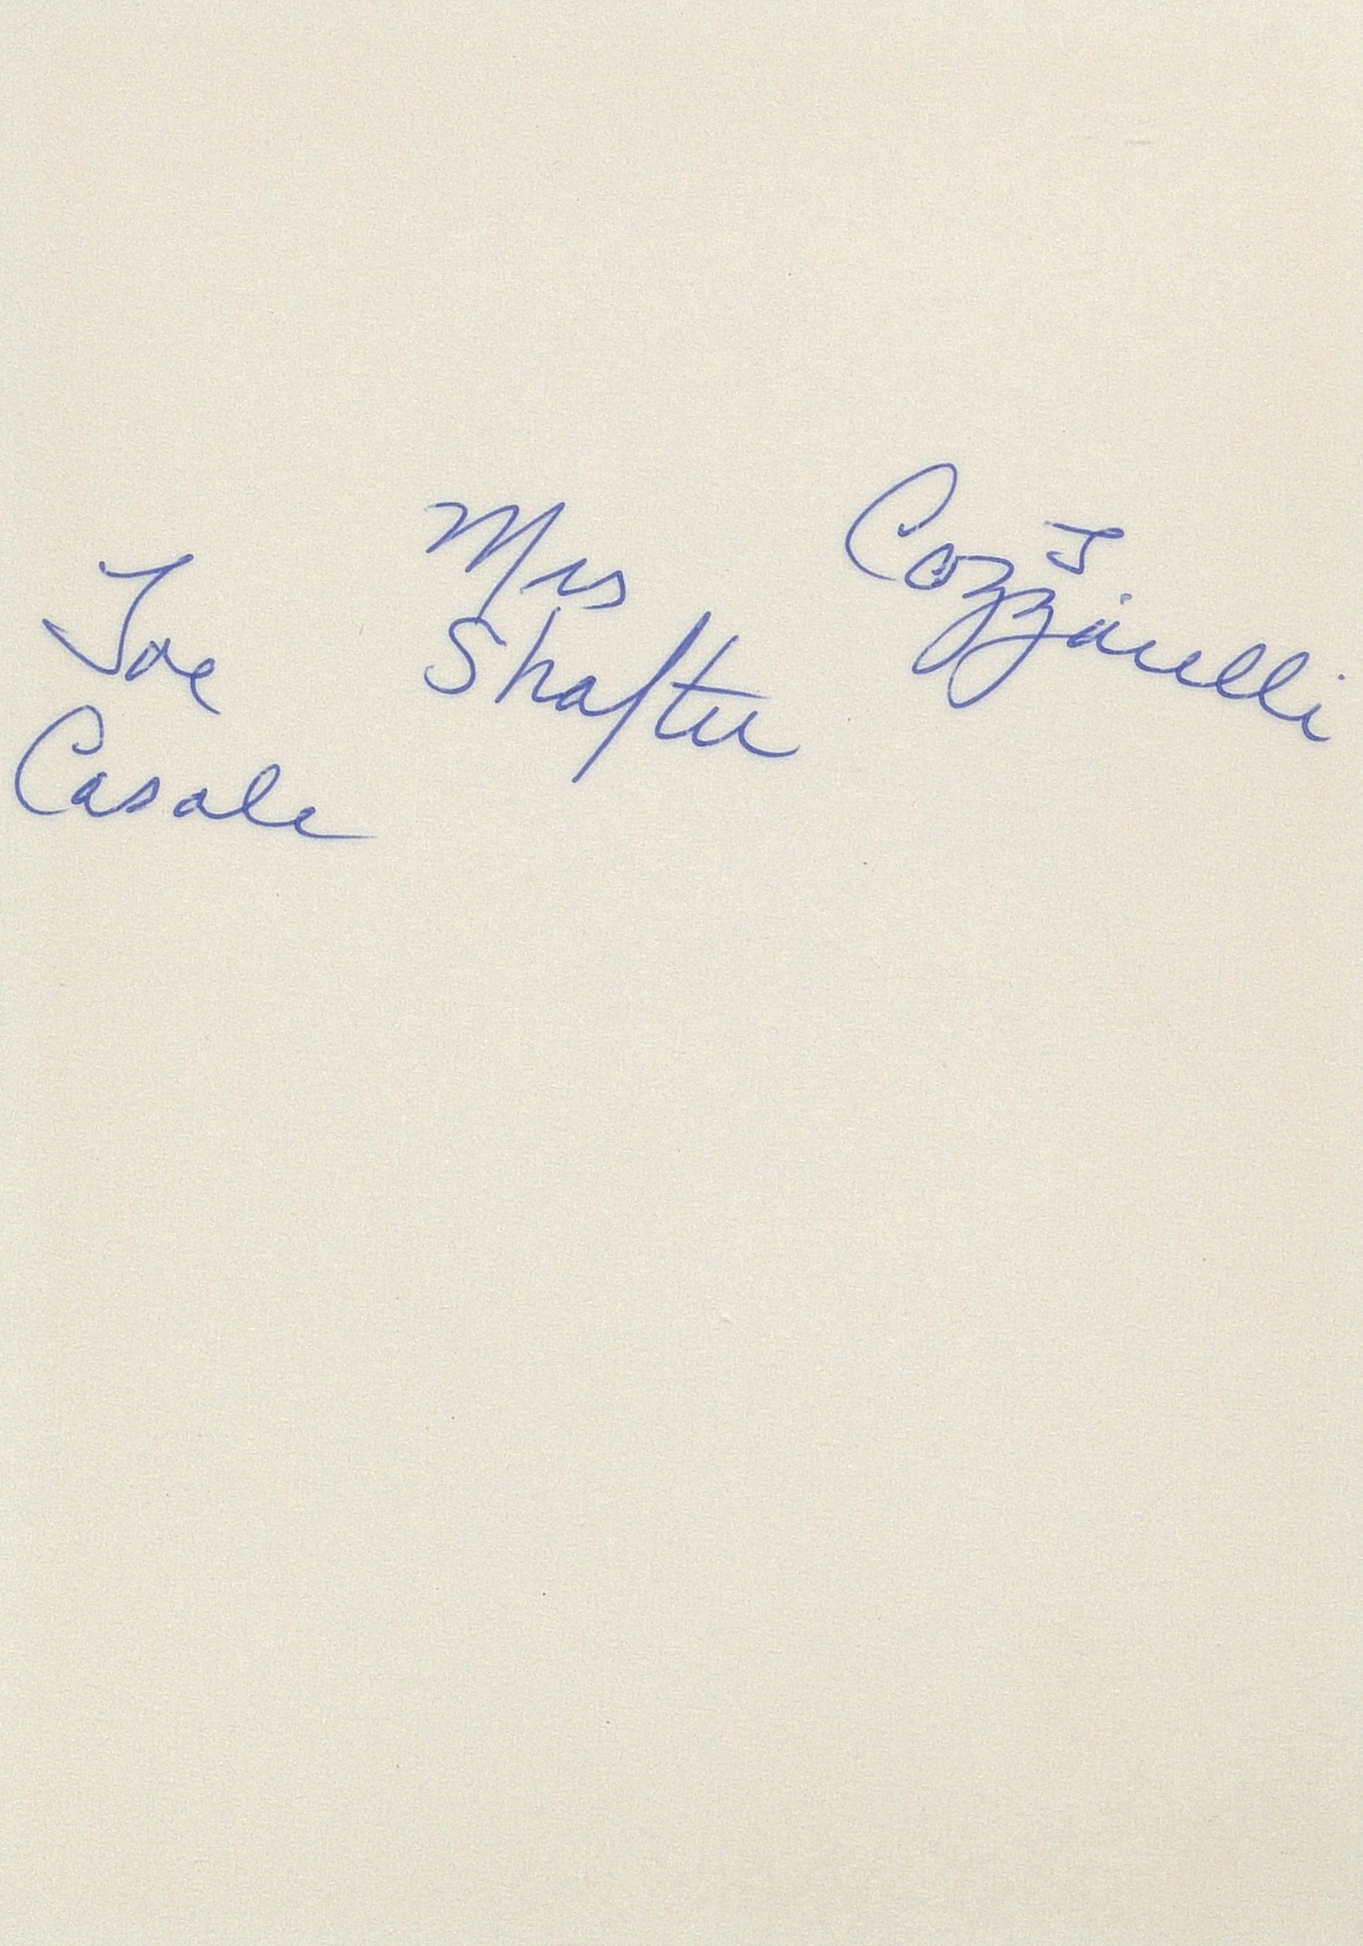 Joe
Casale
Mrs
Shafter
Cozzinelli